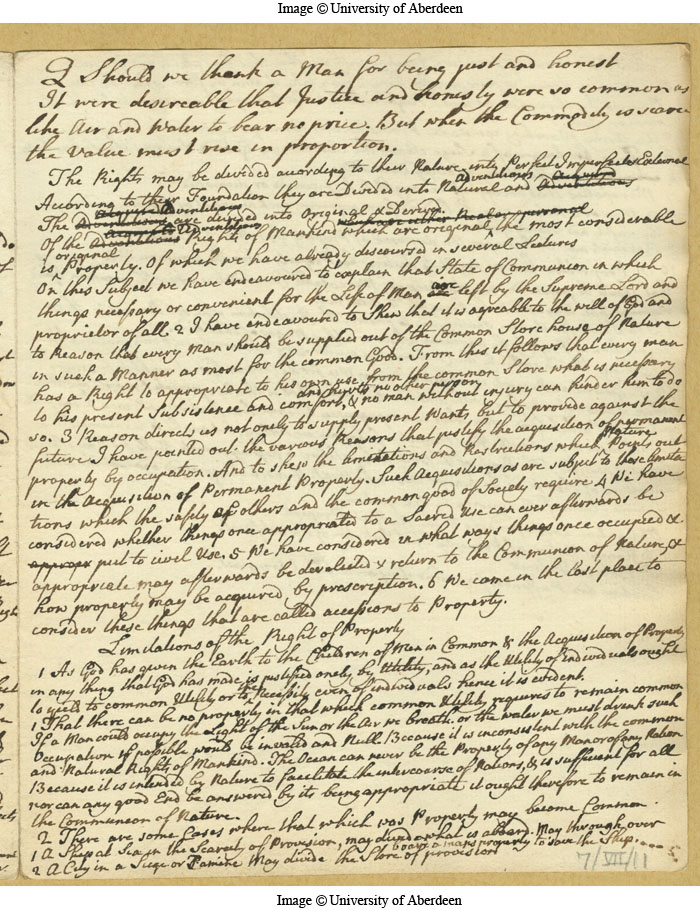 Image © University of Aberdeen
Q Should we thank a Man for being just and honest
It were desireable that Justice and honesty were so common as
like Air and Water to bear no price. But when the Commodity is scarce
the value must rise in proportion.
The Rights may be divided according to their Nature into Perfect Imperfect & External
According to their Foundation they are Divided into Natural and adventitious acquired adventitious
The adventitious acquired Adventitious are divided into Original & Deriv.
Of the Adventitious acquired Adventitious Rights of Mankind which are original, the most considerable
original
is Property. Of which we have already discoursed in several Lectures
On this Subject we have endeavoured to explain that State of Communion in which
things necessary or convenient for the Life of Man are left by the Supreme Lord and
proprietor of all 2 I have endeavoured to Shew that it is agreable to the will of God and
to Reason that every Man should be supplied out of the Common Store house of Nature
in such a Manner as most for the common Good. From this it follows that every man
has a Right to appropriate to his own use from the common Store what is necessary
and hurts no other person
to his present Subsistence and comfort, & no man without injury can hinder him to do
so. 3 Reason directs us not onely to supply present Wants, but to provide against the
future I have pointed out the various Reasons that justify the acquisition of permanent
property by occupation. And to shew the limitations and Restrictions which Nature Points out
in the Acquisition of Permanent Property. Such Acquisitions as are subject to those limita
tions which the safety of others and the common good of Society require 4 We have
considered whether things once appropriated to a Sacred Use can ever afterwards be
appropr put to civil Use. 5 We have considered in what ways things once occupied &
appropriate may afterwards be derelicted & return to the Communion of Nature, &
how property may be acquired by prescription. 6 We came in the last place to
consider these things that are called accessions to Property.
Limitations of the Right of Property
1 As God has given the Earth to the Children of Men in Common & the Acquisition of Property
in any thing that God has made is justified onely by Utility, and as the Utility of individuals ought
to yield to common Utility or to the Necessity even of individuals hence it is evident.
1 That there can be no property in that which common Utility requires to remain common
If a Man could occupy the Light of the Sun or the Air we breath. or the water we must drink such
Occupation if possible would be invalid and Null. Because it is inconsistent with the common
and Natural Rights of Mankind. The Ocean can never be the Property of any Man or of any Nation
Because it is intended by Nature to facilitate the intercourse of Nations, & is sufficient for all
nor can any good End be answered by its being appropriate it ought therefore to remain in
the Communion of Nature.
2 There are some Cases where that which was Property may become Common.
1 A Ship at Sea in the Scarcity of Provision, may divide what is aboard. May throw over
board a mans property to save the Ship
2 A City in a Siege or Famine May divide the Store of provision
7/VII/11
Image © University of Aberdeen